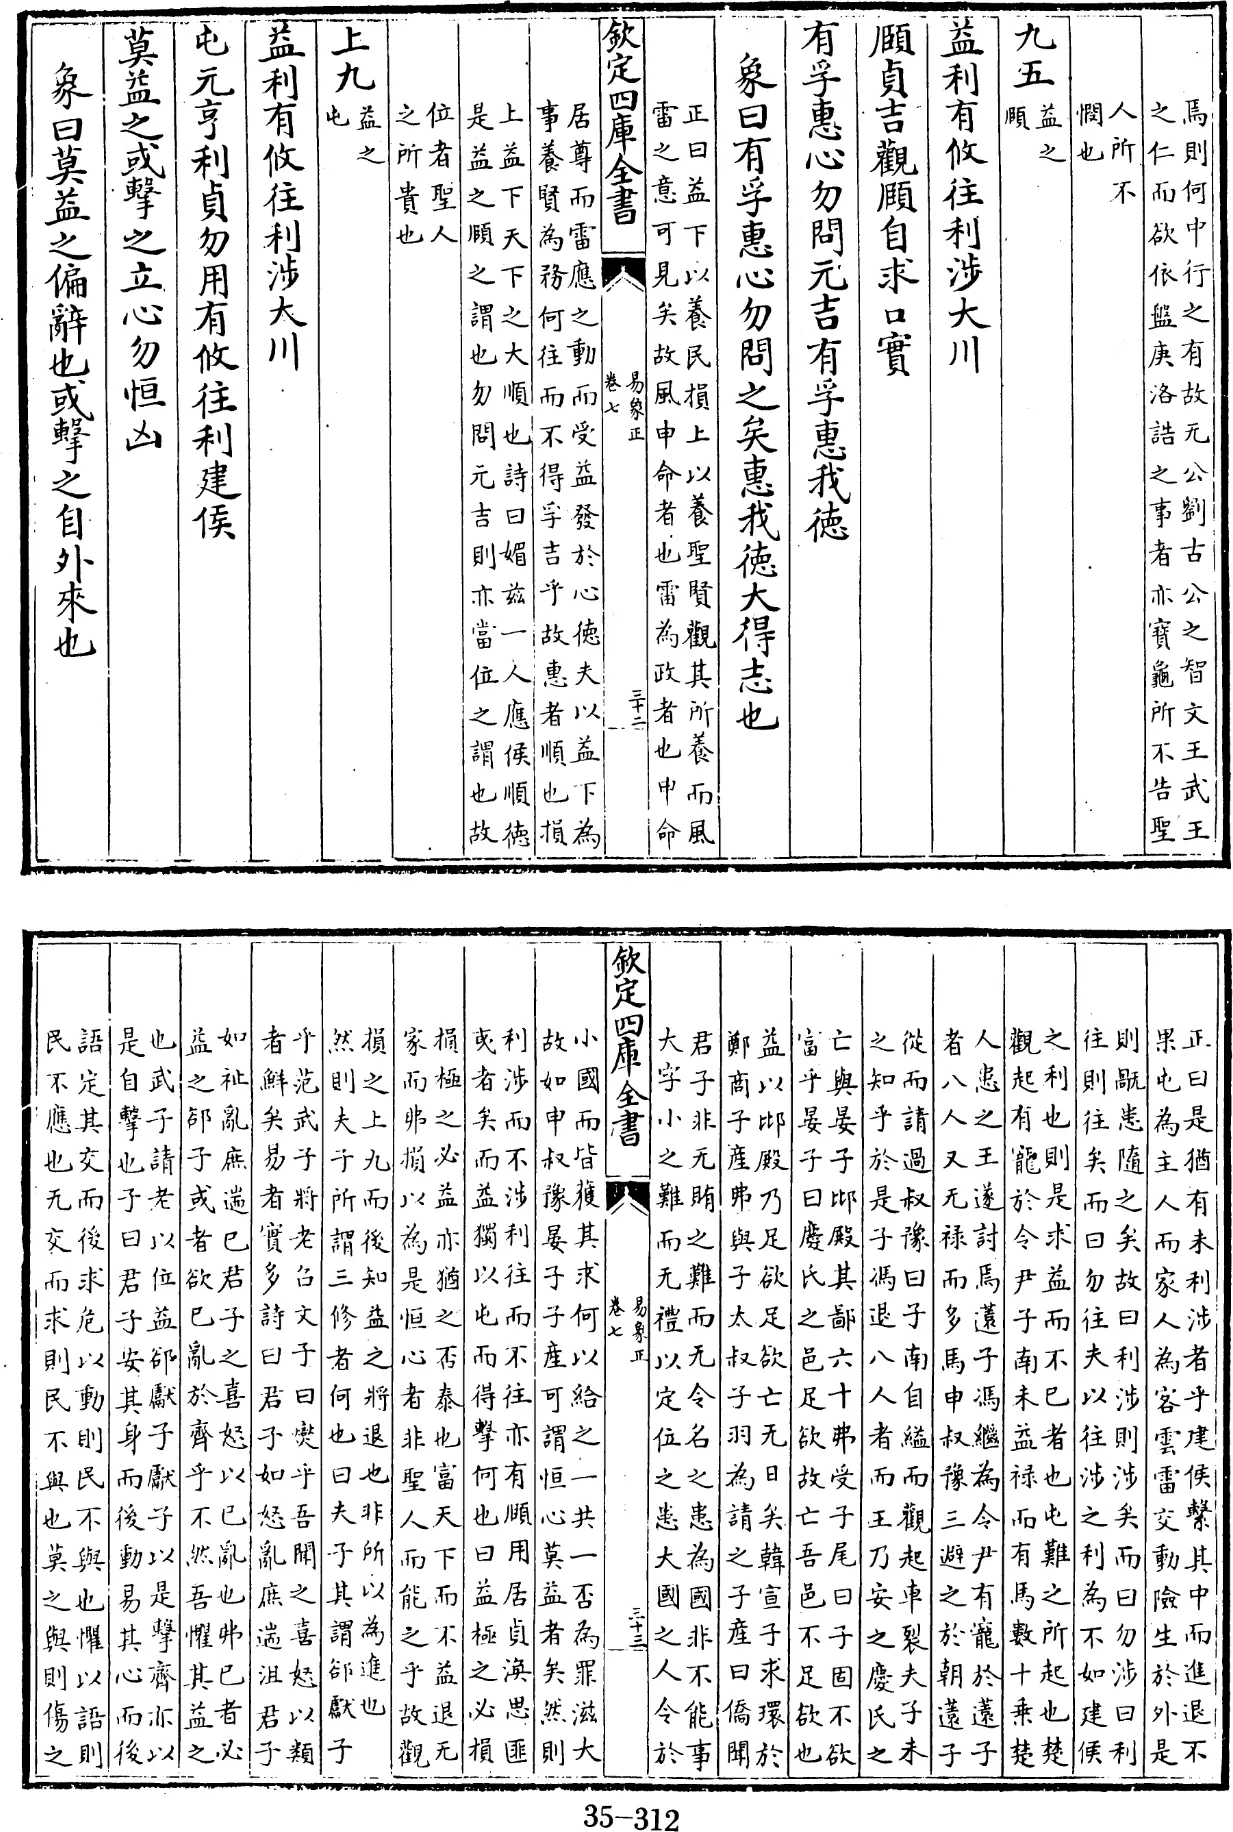 焉則何中行之有故元公劉古公之智文王武王
之仁而欲依盤庚洛誥之事者亦寶龜所不告聖
人所不
憫也
九五益之
頤
益利有攸往利涉大川
頤貞吉觀頤自求口實
有孚惠心勿問元吉有孚惠我德
象曰有孚惠心勿問之矣惠我德大得志也
正曰益下以養民損上以養聖賢觀其所養而風
雷之意可見矣故風申命者也雷為政者也申命
欽定四庫全書
易象正
卷七
三十二
居尊而雷應之動而受益發於心德夫以益下為
事養賢為務何往而不得孚吉乎故惠者順也損
上益下天下之大順也詩曰媚茲一人應侯順德
是益之頤之謂也勿問元吉則亦當位之謂也故
位者聖人
之所貴也
上九益之
屯
益利有攸往利涉大川
屯元亨利貞勿用有攸往利建侯
莫益之或擊之立心勿恒凶
象曰莫益之偏辭也或擊之自外來也
正曰是猶有未利涉者乎建侯繫其中而進退不
果屯為主人而家人為客雲雷交動險生於外是
則翫恚隨之矣故曰利涉則涉矣而曰勿涉曰利
往則往矣而曰勿往夫以往涉之利為不如建侯
之利也則是求益而不已者也屯難之所起也楚
觀起有寵於令尹子南未益祿而有馬數十乘楚
人患之王遂討焉薳子馮繼為令尹有寵於薳子
者八人又无祿而多馬申叔豫三避之於朝薳子
從而請過叔豫曰子南自縊而觀起車裂夫子未
之知乎於是子馮退八人者而王乃安之慶氏之
亡與晏子邶殿其鄙六十弗受子尾曰子固不欲
富乎晏子曰慶氏之邑足欲故亡吾邑不足欲也
益以邶殿乃足欲足欲亡无日矣韓宣子求環於
鄭商子產弗與子太叔子羽為請之子產曰僑聞
君子非无賄之難而无令名之患為國非不能事
大字小之難而无禮以定位之患大國之人令於
欽定四庫全書
易象正
卷七
三十三
小國而皆獲其求何以給之一共一否為罪滋大
故如申叔豫晏子子產可謂恒心莫益者矣然則
利涉而不涉利往而不往亦有頤用居貞渙思匪
夷者矣而益獨以屯而得擊何也曰益極之必損
損極之必益亦猶之否泰也富天下而不益退无
家而弗損以為是恒心者非聖人而能之乎故觀
損之上九而後知益之將退也非所以為進也
然則夫子所謂三修者何也曰夫子其謂郤獻子
乎范武子將老召文子曰燮乎吾聞之喜怒以類
者鮮矣易者實多詩曰君子如怒亂庶遄沮君子
如祉亂庶遄已君子之喜怒以已亂也弗已者必
益之郤子或者欲已亂於齊乎不然吾懼其益之
也武子請老以位益郤獻子獻子以是擊齊亦以
是自擊也子曰君子安其身而後動易其心而後
語定其交而後求危以動則民不與也懼以語則
民不應也无交而求則民不與也莫之與則傷之
35-312